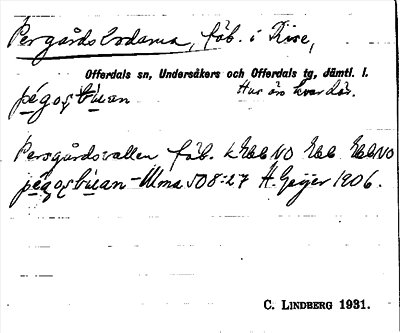 Pergårdsbodarna, fäb. i Rise,
Offerdals sn, Undersåkers och Offerdals tg, Jämtl. l.
pégosbúan Hur äro kvar där.
Persgårdsvallen fäb.
pégosbúan – Ulma 508:27 H. Geijer 1906.
C. LINDBERG 1931.